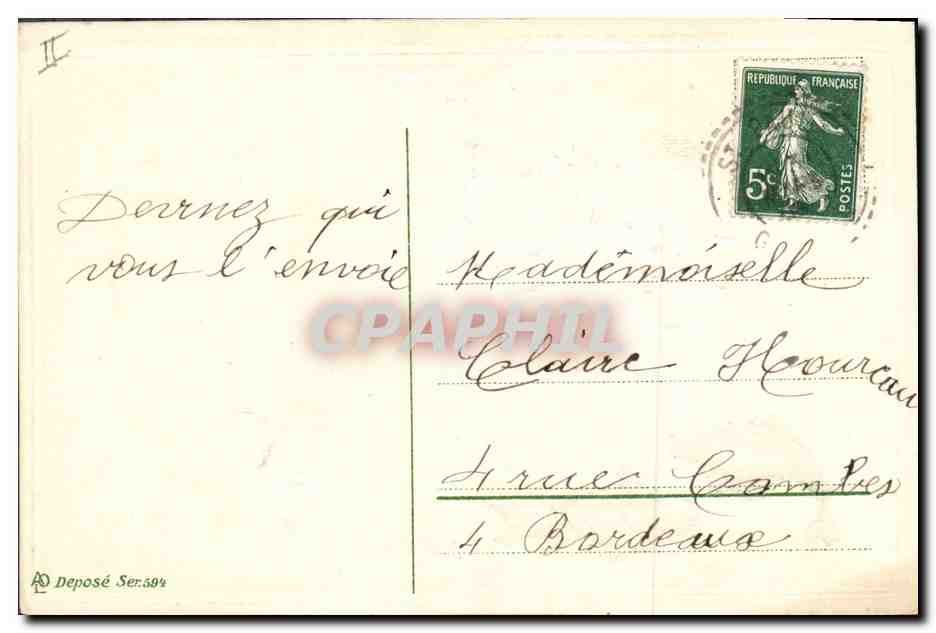 II
REPUBLIQUE FRANÇAISE
5c
POSTES
Devinez qui
vous l'envoie
Mademoiselle
Claire Hourcau
4 rue Combes
4 Bordeaux
CPAPHIL
Deposé Ser. 594